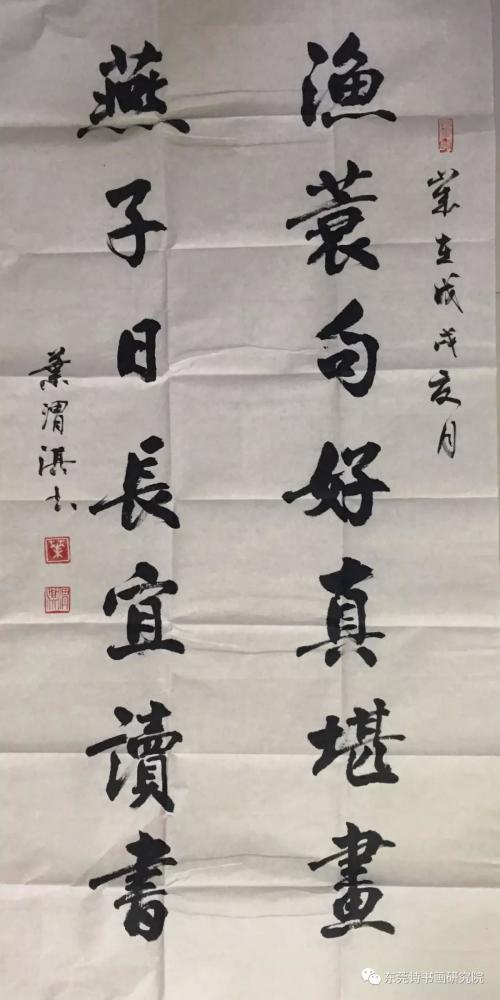 歲在戊戌亥月
漁蓑句好真堪畫
燕子日長宜讀書
葉渭湛书
东莞诗书画研究院